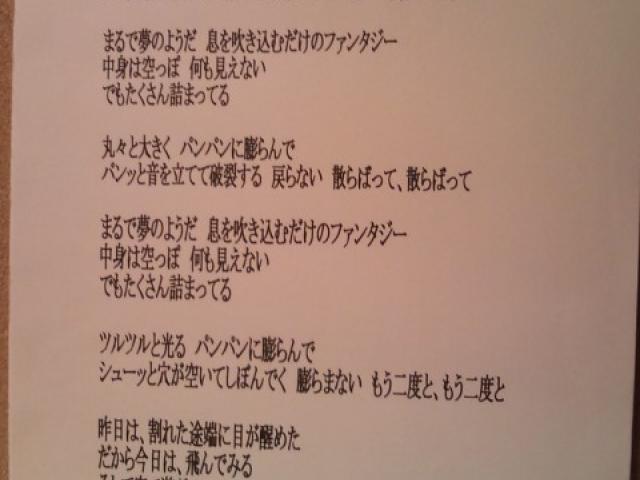 まるで夢のようだ　息を吹き込むだけのファンタジー
中身は空っぽ　何も見えない
でもたくさん詰まってる
丸々と大きく　パンパンに膨らんで
パンッと音を立てて破裂する　戻らない　散らばって、散らばって
まるで夢のようだ　息を吹き込むだけのファンタジー
中身は空っぽ　何も見えない
でもたくさん詰まってる
ツルツルと光る　パンパンに膨らんで
シューッと穴が空いてしぼんでく　膨らまない　もう二度と、もう二度と
昨日は、割れた途端に目が醒めた
だから今日は、飛んでみる